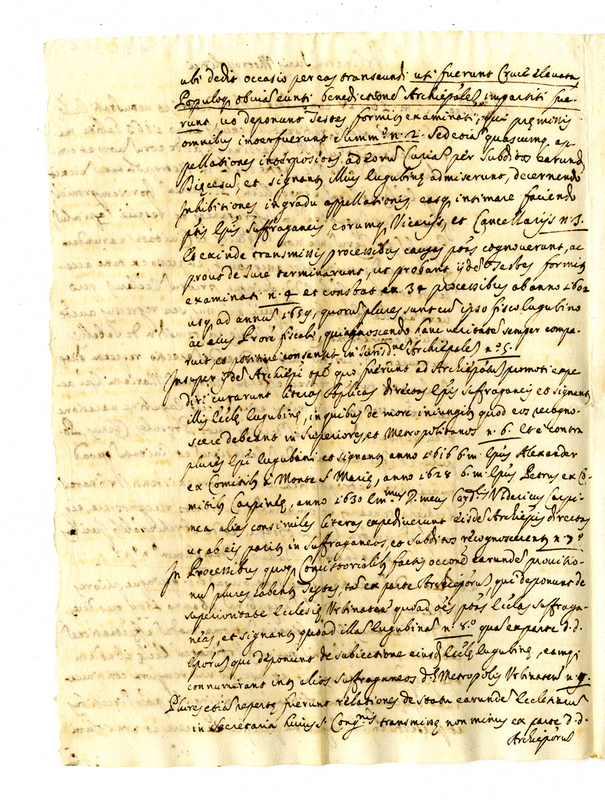 ubi dedit occasio per eas transeundi uti fuerunt Cruce elevata
Populoq obvia eunti benedictiones Archiepales impartiti fue-
runt, ut deponunt Testes formiter examinati, qui premissis
omnibus interfuerunt Summo n. 2. Sed etia quascunq ap-
pellationes interpositas ad eorum Curias per subditos earund
Diecesu, et signanter illius Eugubine admiserunt, decernendo
Inhibitiones in gradu appellationis, easq intimare faciendo
ptis Epis suffraganeis eorumq Vicariis, et Cancellariis n. 3.
et exinde transmissis processibus causas ptas cognoverunt, ac
prout de Jure terminarunt, ut probant ijdem Testes formiter
examinati n. 4 et constat ex 34 processibus ab anno 1602
usq ad annum 1659, quorum plures sunt cum ipso fisco Eugubino
ac eius Prore fiscali, qui agnoscendo hanc veritate semper compa-
ruit, et positive consensit in Jurisdne Archiepali n. 5.
Insuper ijdem Archiepi quo fuerunt ad Archiepatum promoti expe
diri curarunt literas Aplicas directas Epis suffraganeis et signanter
illis Eccle Eugubine, in quibus de more iniungitur quod eos recogno-
scere debeant in Superiores, et Metropolitanos n. 6. et e contra
plures Epi Eugubini et signanter anno 1616 b. m. Epus Alexander
ex Comitibus Monte S. Marie, anno 1628 b. m. Epus Petrus ex Co-
mitibus Carpinee, anno 1630 Emmus D. meus Cardlis Uldericus Carpi-
neus alias consimiles literas expediverunt eisdem Archiepis directas
ut ab eis pariter in suffraganeos et subditos recognoscerentur n. 7.
In Processibus quoq Consistorialibus factis occone earundem provisio-
num plures habentur Testes tam ex parte Archieporum qui deponunt de
superioritate Ecclesie Urbinaten quoad oes ptas Ecclas suffraga-
neas, et signanter quoad illam Eugubinam n. 8. quam ex parte d. d.
Eporum qui deponunt de subiectione eiusdem Eccle Eugubine, eamq
connumerant inter alias suffraganeas d. Metropolis Urbinaten n. 9.
Plures etiam reperte fuerunt relationes de statu earundem Ecclesiarum
in Secretaria huius S. Congnis transmisse non minus ex parte d. d.
Archieporum